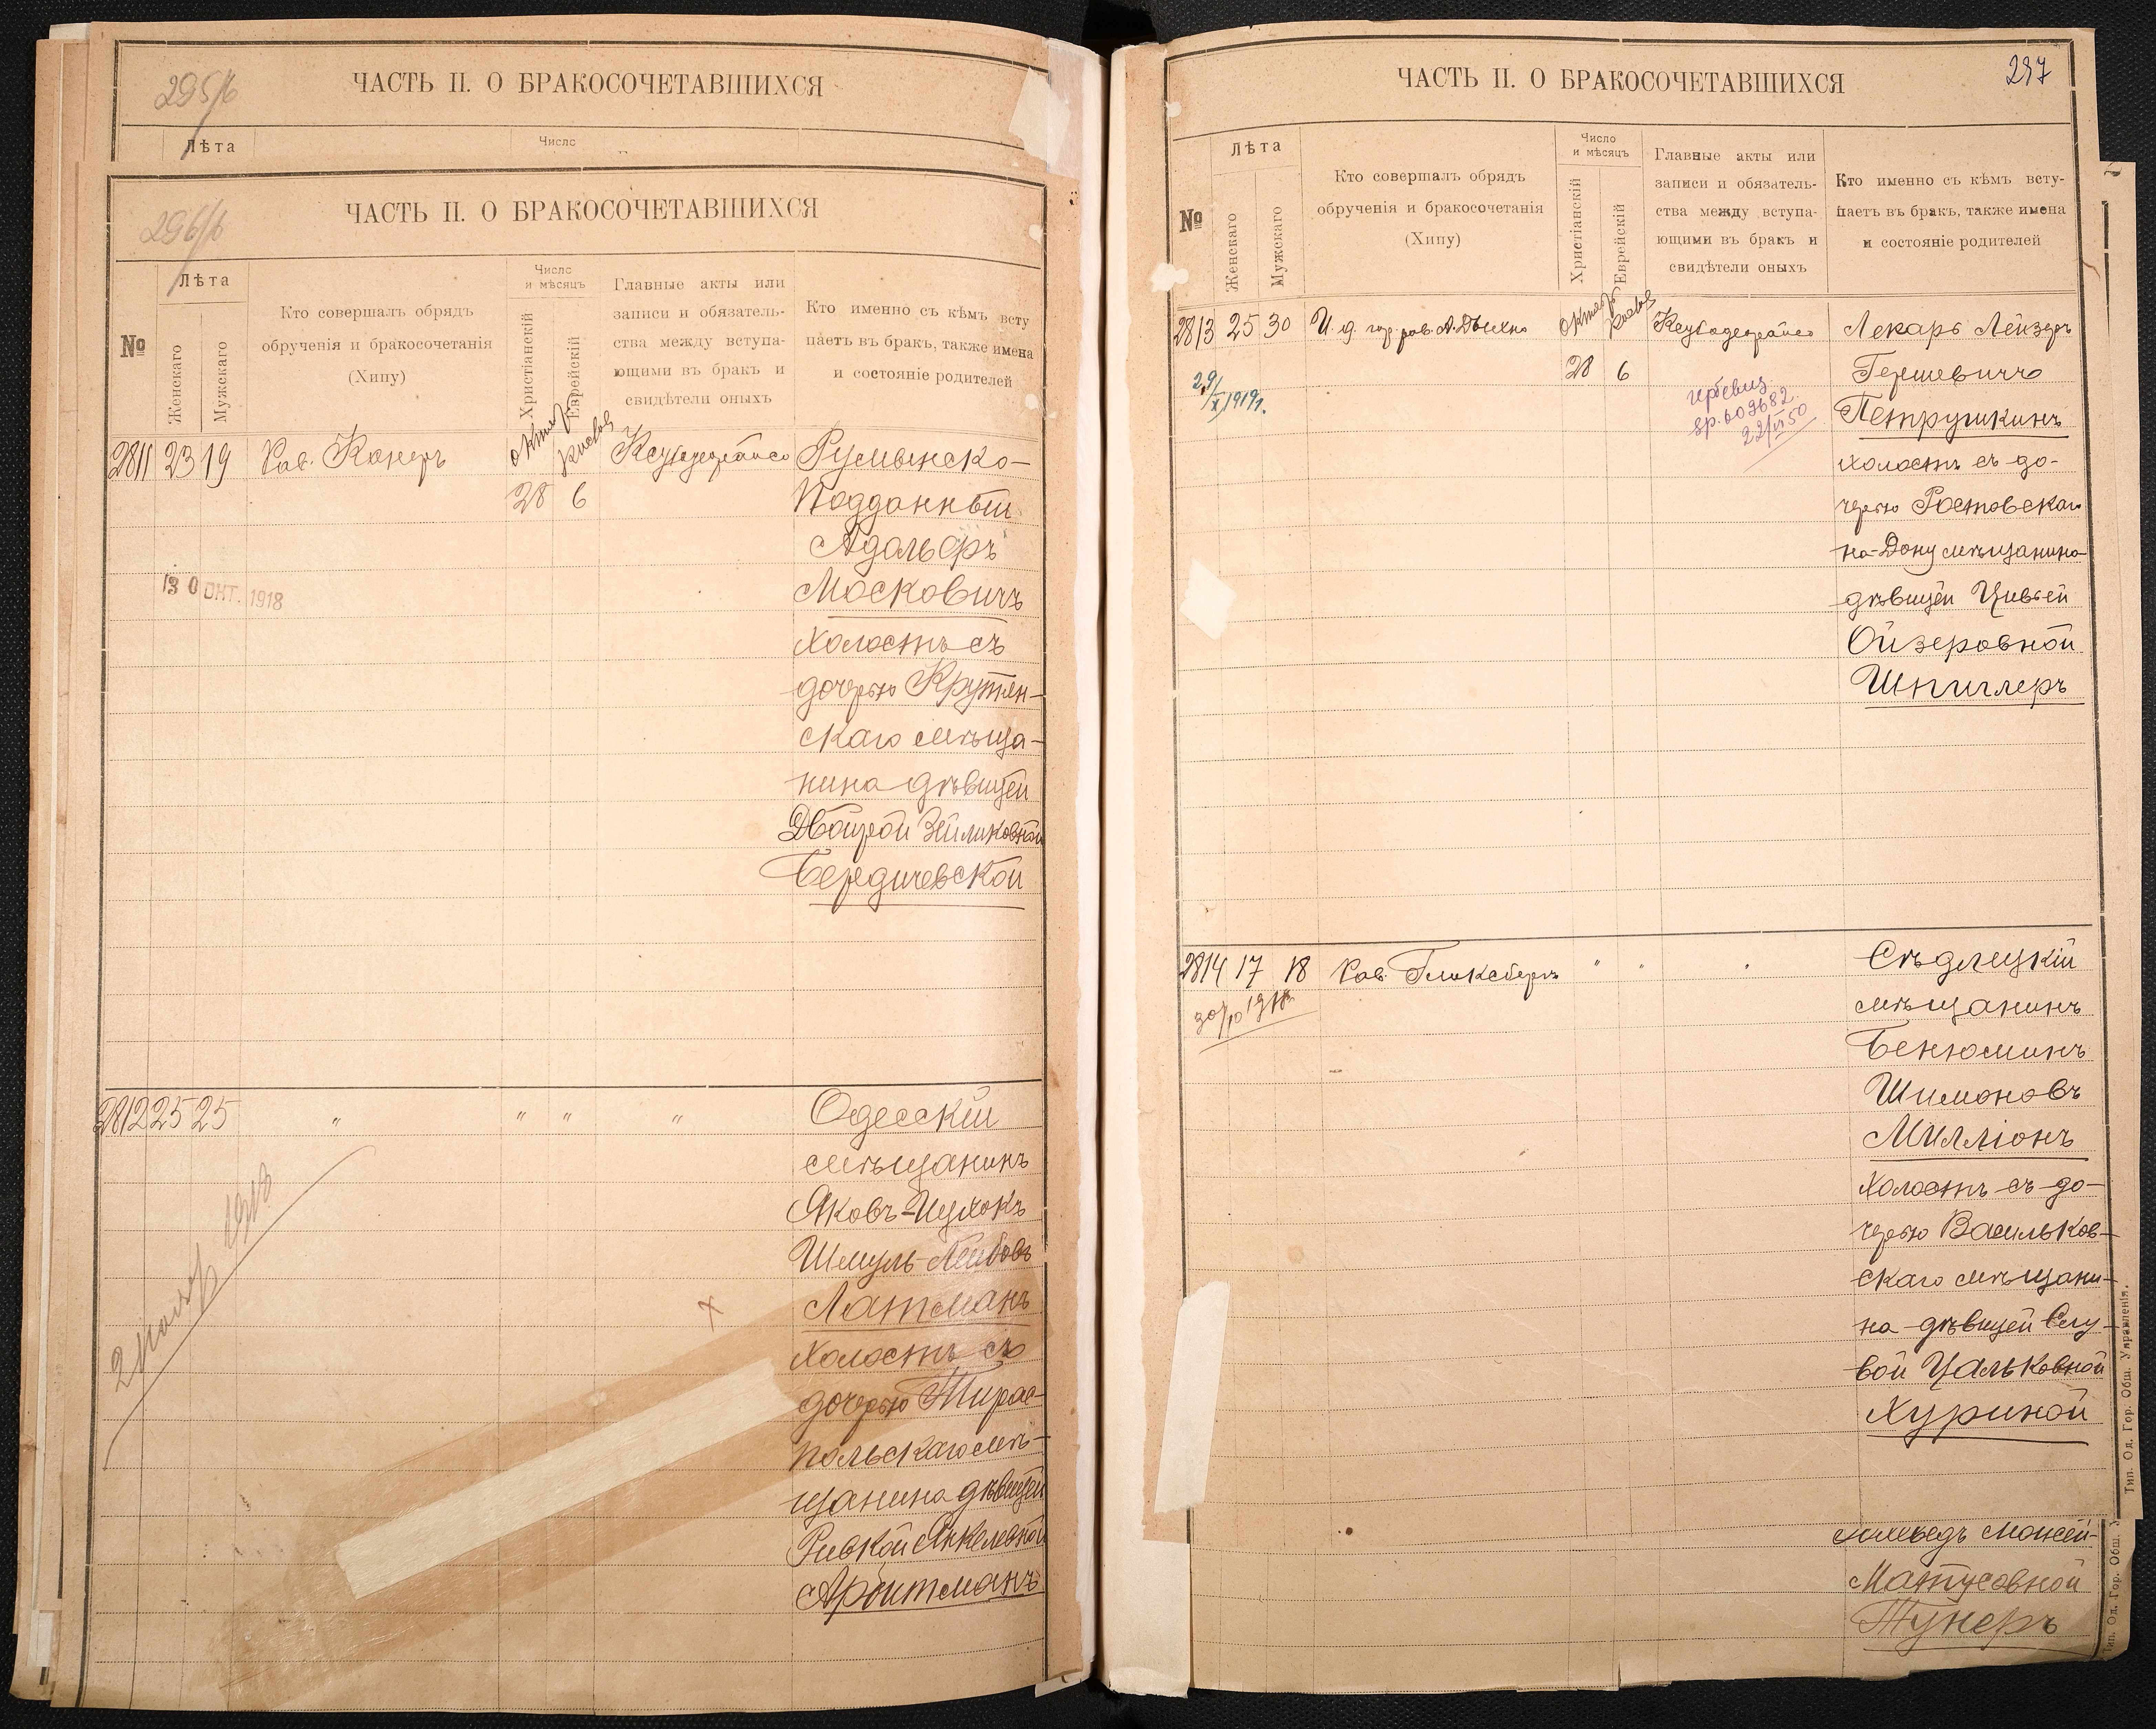 295/б
ЧАСТЬ II. О БРАКОСОЧЕТАВШИХСЯ
Лѣта
Число
296/б
ЧАСТЬ II. О БРАКОСОЧЕТАВШИХСЯ
№
Лѣта
Женскаго
Мужскаго
Кто совершалъ обрядъ
обрученія и бракосочетанія
(Хипу)
Число
и мѣсяцъ
Христіанскій
Еврейскій
Главные акты или
записи и обязатель-
ства между вступа-
ющими въ бракъ и
свидѣтели оныхъ
Кто именно съ кѣмъ всту
паетъ въ бракъ, также имена
и состояніе родителей
2811 23 19 Рав. Канеръ Октяб Хисвов Кеубодерайсо Румынско-
28 6 Подданный
Адольфъ
30 ОКТ. 1918
Московичъ
холостъ съ
дочерью Крутян-
скаго мѣща-
нина дѣвицей
Двойрой Зейликовной
Бердичевской
2812 25 25 " " " " Одесскій
мѣщанинъ
Яковъ-Ицхокъ
Шмуль Лейбовъ
Латманъ
холостъ съ
дочерью Тирас-
польскаго мѣ-
щанина дѣвицей
Ривкой Янкелевной
Аройтманъ
2 ноября 1918
ЧАСТЬ II. О БРАКОСОЧЕТАВШИХСЯ
297
№
Лѣта
Женскаго
Мужскаго
Кто совершалъ обрядъ
обрученія и бракосочетанія
(Хипу)
Число
и мѣсяцъ
Христіанскій
Еврейскій
Главные акты или
записи и обязатель-
ства между вступа-
ющими въ бракъ и
свидѣтели оныхъ
Кто именно съ кѣмъ всту-
паетъ въ бракъ, также имена
и состояніе родителей
2813 25 30 И. д. гор. рав. А. Дыхно Октяб Хисвов Кеубодерайсо Лекарь Лейзеръ
28 6 Гершевичъ
29/X 1919г.
609682
22/VI 50
Петрушкинъ
холостъ съ до-
черью Ростовскаго
на-Дону мѣщанина
дѣвицей Цивьей
Ойзеровной
Шпиглеръ
2814 17 18 Рав. Гликсбергъ " " " Сѣдлецкій
30/10 1918
мѣщанинъ
Бенюминъ
Шимоновъ
Милліонъ
холостъ съ до-
черью Васильков-
скаго мѣщани-
на дѣвицей Слу-
вой Цальковной
Хуриной
Матусовной
Тунеръ
Тип. Од. Гор. Общ. Управленія.
Тип. Од. Гор. Общ. У